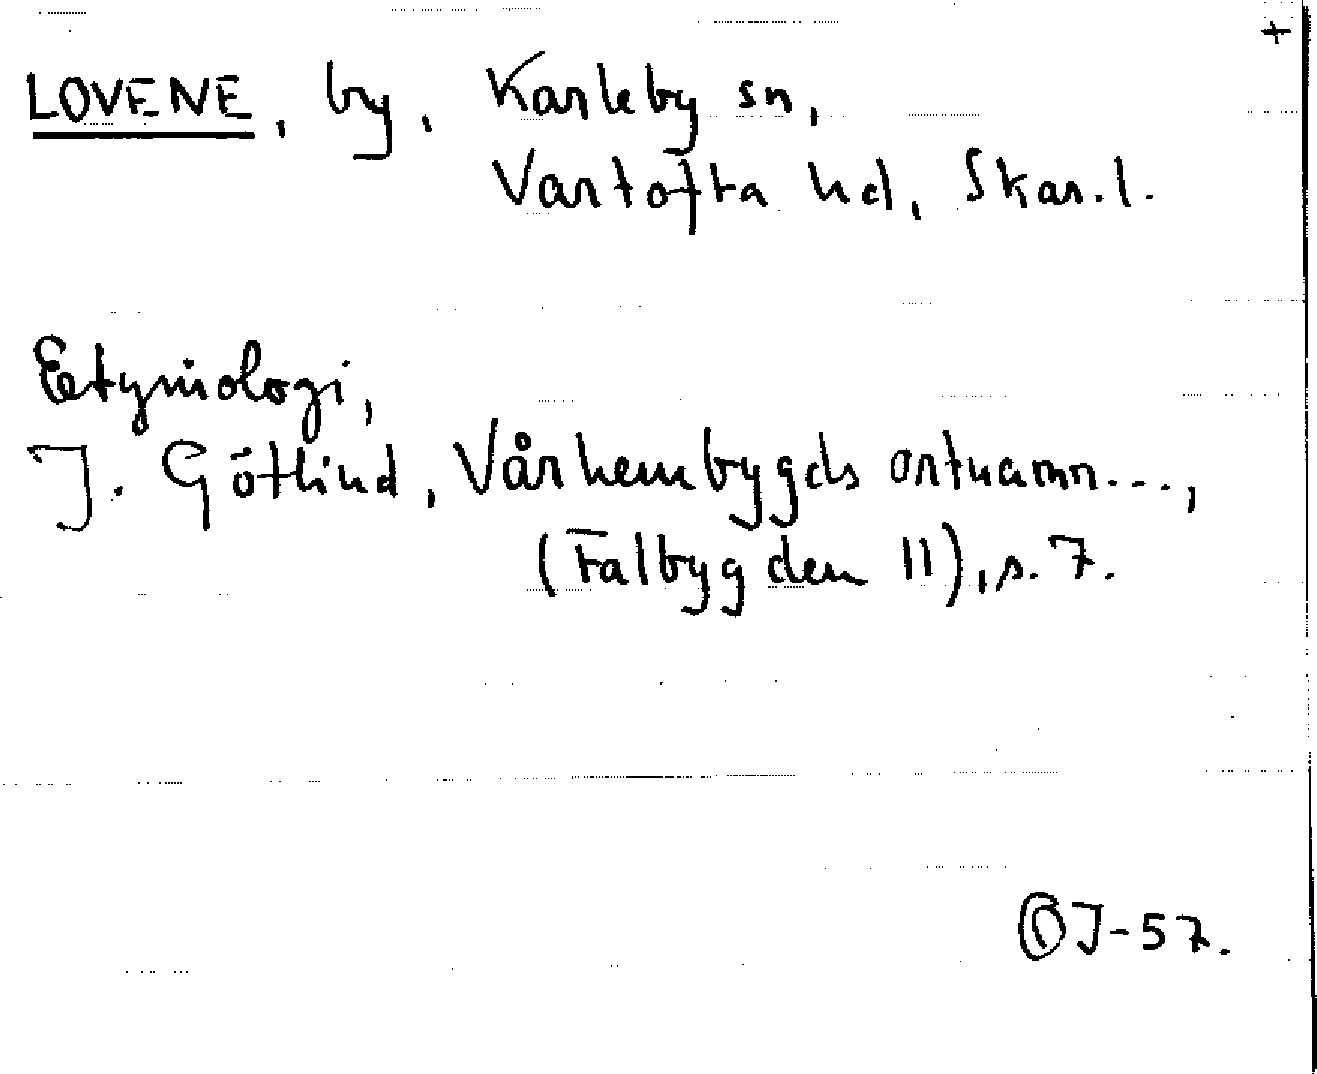 +
LOVENE, by, Karleby sn,
Vartofta hd, Skar.l.
Etymologi,
J. Götlind, Vår hembygds ortnamn...,
(Falbygden II), s. 7.
OJ-57.